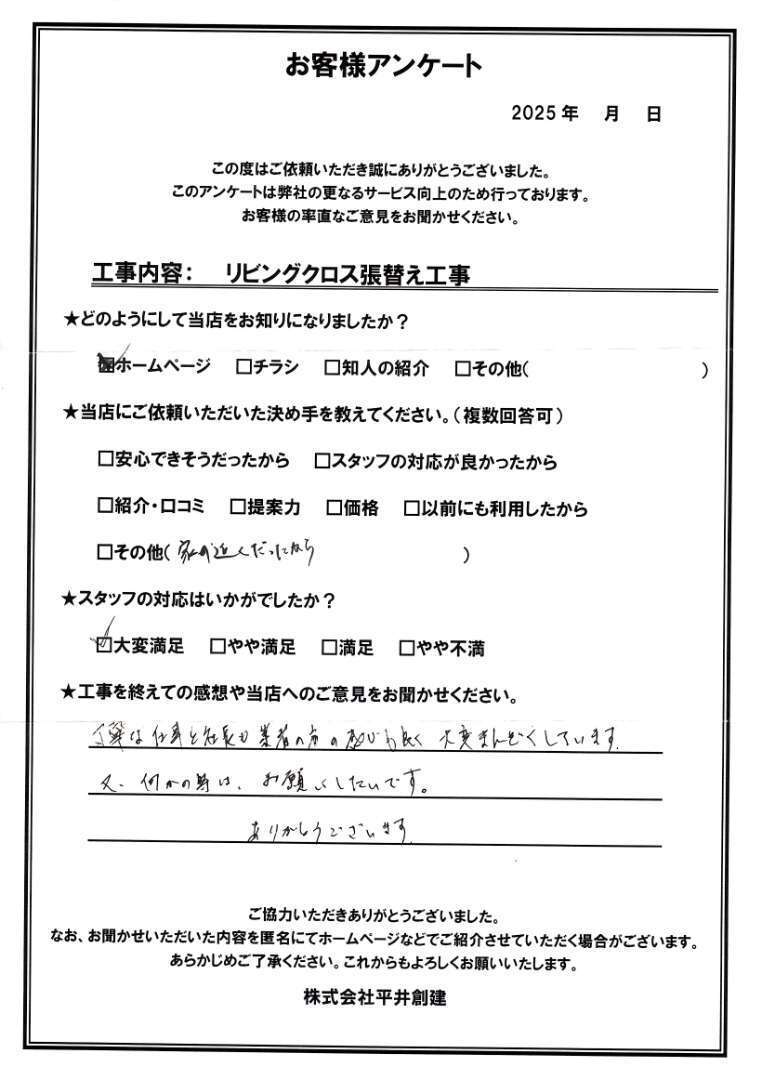 お客様アンケート
2025年 月 日
この度はご依頼いただき誠にありがとうございました。
このアンケートは弊社の更なるサービス向上のため行っております。
お客様の率直なご意見をお聞かせください。
工事内容: リビングクロス張替え工事
★どのようにして当店をお知りになりましたか?
☑ホームページ □チラシ □知人の紹介 □その他( )
★当店にご依頼いただいた決め手を教えてください。(複数回答可)
□安心できそうだったから □スタッフの対応が良かったから
□紹介・口コミ □提案力 □価格 □以前にも利用したから
□その他(家が近くだったから )
★スタッフの対応はいかがでしたか?
☑大変満足 □やや満足 □満足 □やや不満
★工事を終えての感想や当店へのご意見をお聞かせください。
丁寧な仕事と社長も業者の方の感じも良く 大変まんぞくしています。
又、何かの時は、お願いしたいです。
ありがとうございます。
ご協力いただきありがとうございました。
なお、お聞かせいただいた内容を匿名にてホームページなどでご紹介させていただく場合がございます。
あらかじめご了承ください。これからもよろしくお願いいたします。
株式会社平井創建